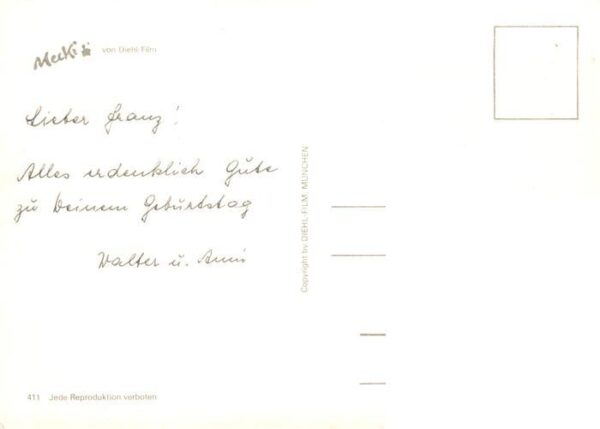 Mecki von Diehl-Film
Lieber Franz!
Alles erdenklich Gute
zu Deinem Geburtstag
Walter u. Anni
Copyright by DIEHL-FILM MÜNCHEN
411 Jede Reproduktion verboten